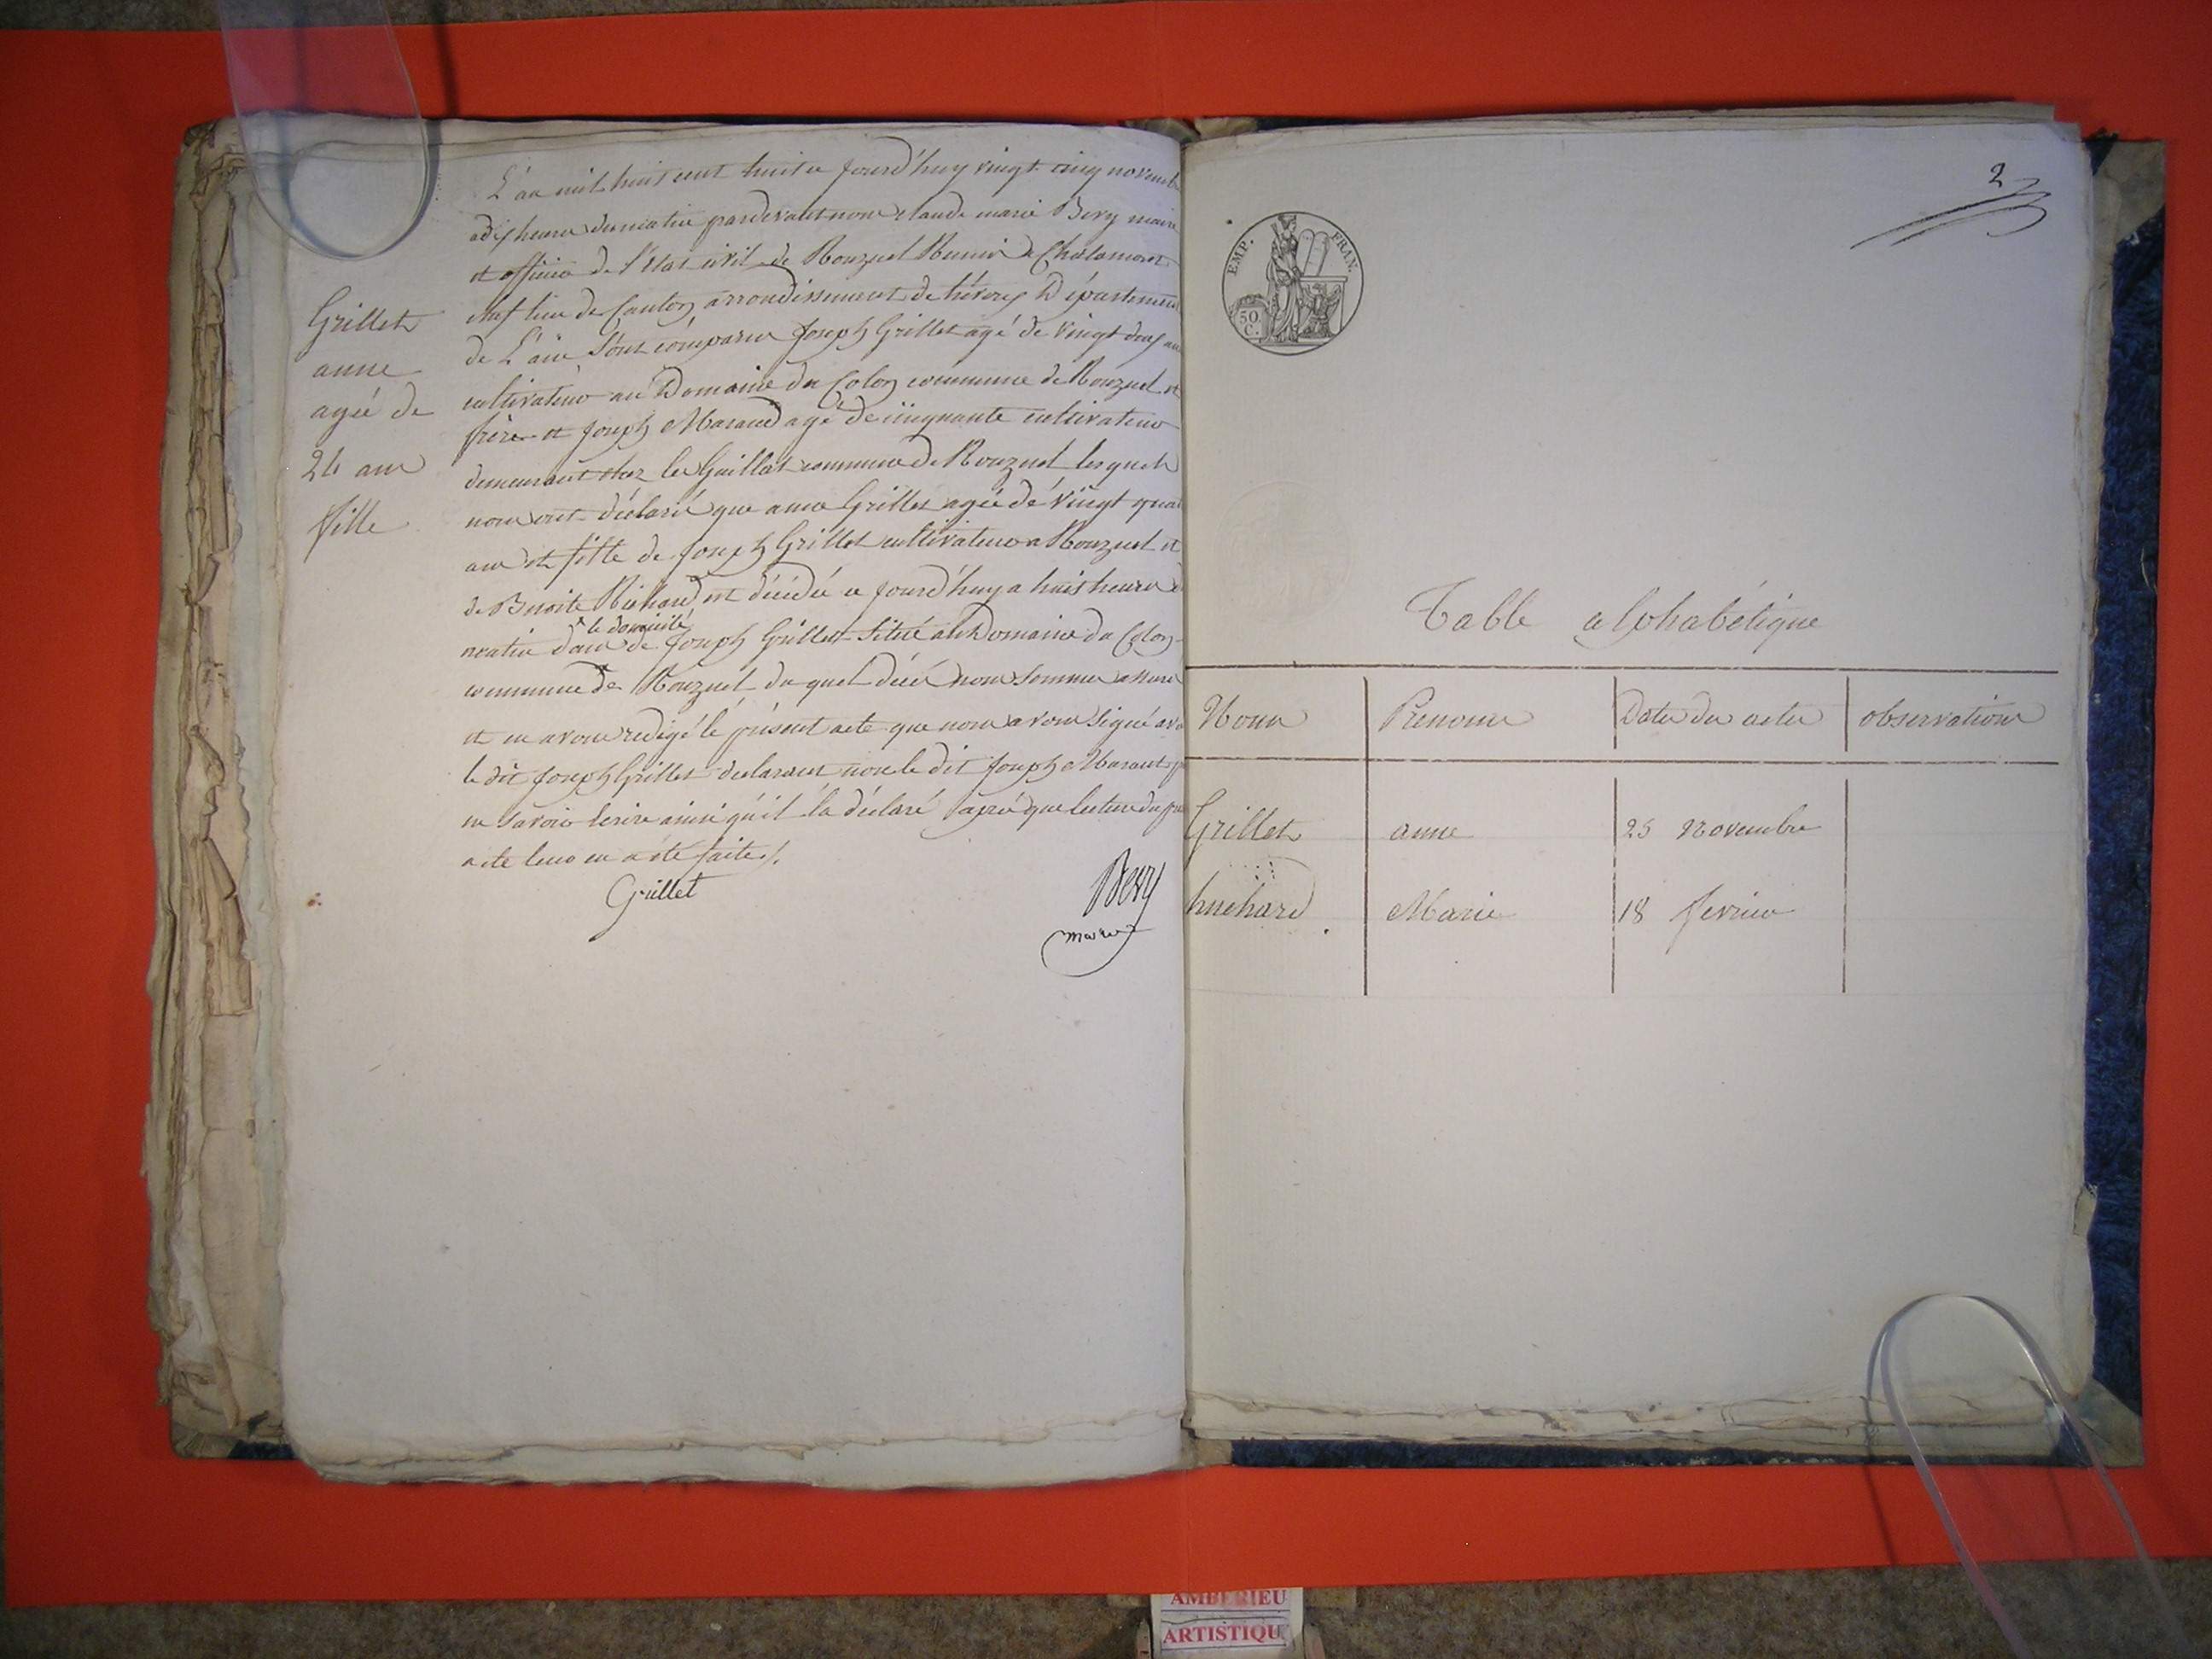 L'an mil huit cent huit ce jourd'huy vingt cinq novemb
a dix heures du matin pardevant nous claude marie Bery maire
et officier de l'état civil de Ronzuel Reunie a Chalamont
chef lieu de Canton arrondissement de trévoux Département
de L'ain Sont comparus Joseph Grillet agé de vingt deux ans
cultivateur au Domaine du Colon commune de Ronzuel et
frère et Joseph Maraud agé de cinquante cultivateur
demeurant chez les Guillat commune de Ronzuel lesquels
nous ont déclaré que anne Grillet agée de vingt qua
ans et fille de Joseph Grillet cultivateur a Ronzuel et
de Benoite Richard est décédée ce jourd'huy a huit heures d
le domicile
matin dans de Joseph Grillet situé au Domaine du Colon
commune de Ronzuel du quel décé nous sommes assuré
et en avons redigé le présent acte que nous avons signé ave
le dit Joseph Grillet declarant non le dit Joseph Maraut p
ne savoir écrire ainsi qu'il l'a déclaré après que lecture du pre
acte leur en a été faite.
Grillet
Bery
maire
Grillet
anne
agée de
24 ans
fille
2
EMP. FRAN.
50
C.
Table alphabétique
Noms Prenoms Date des actes observations
Grillet anne 25 Novembre
huchard Marie 18 fevrier
AMBERIEU
ARTISTIQU